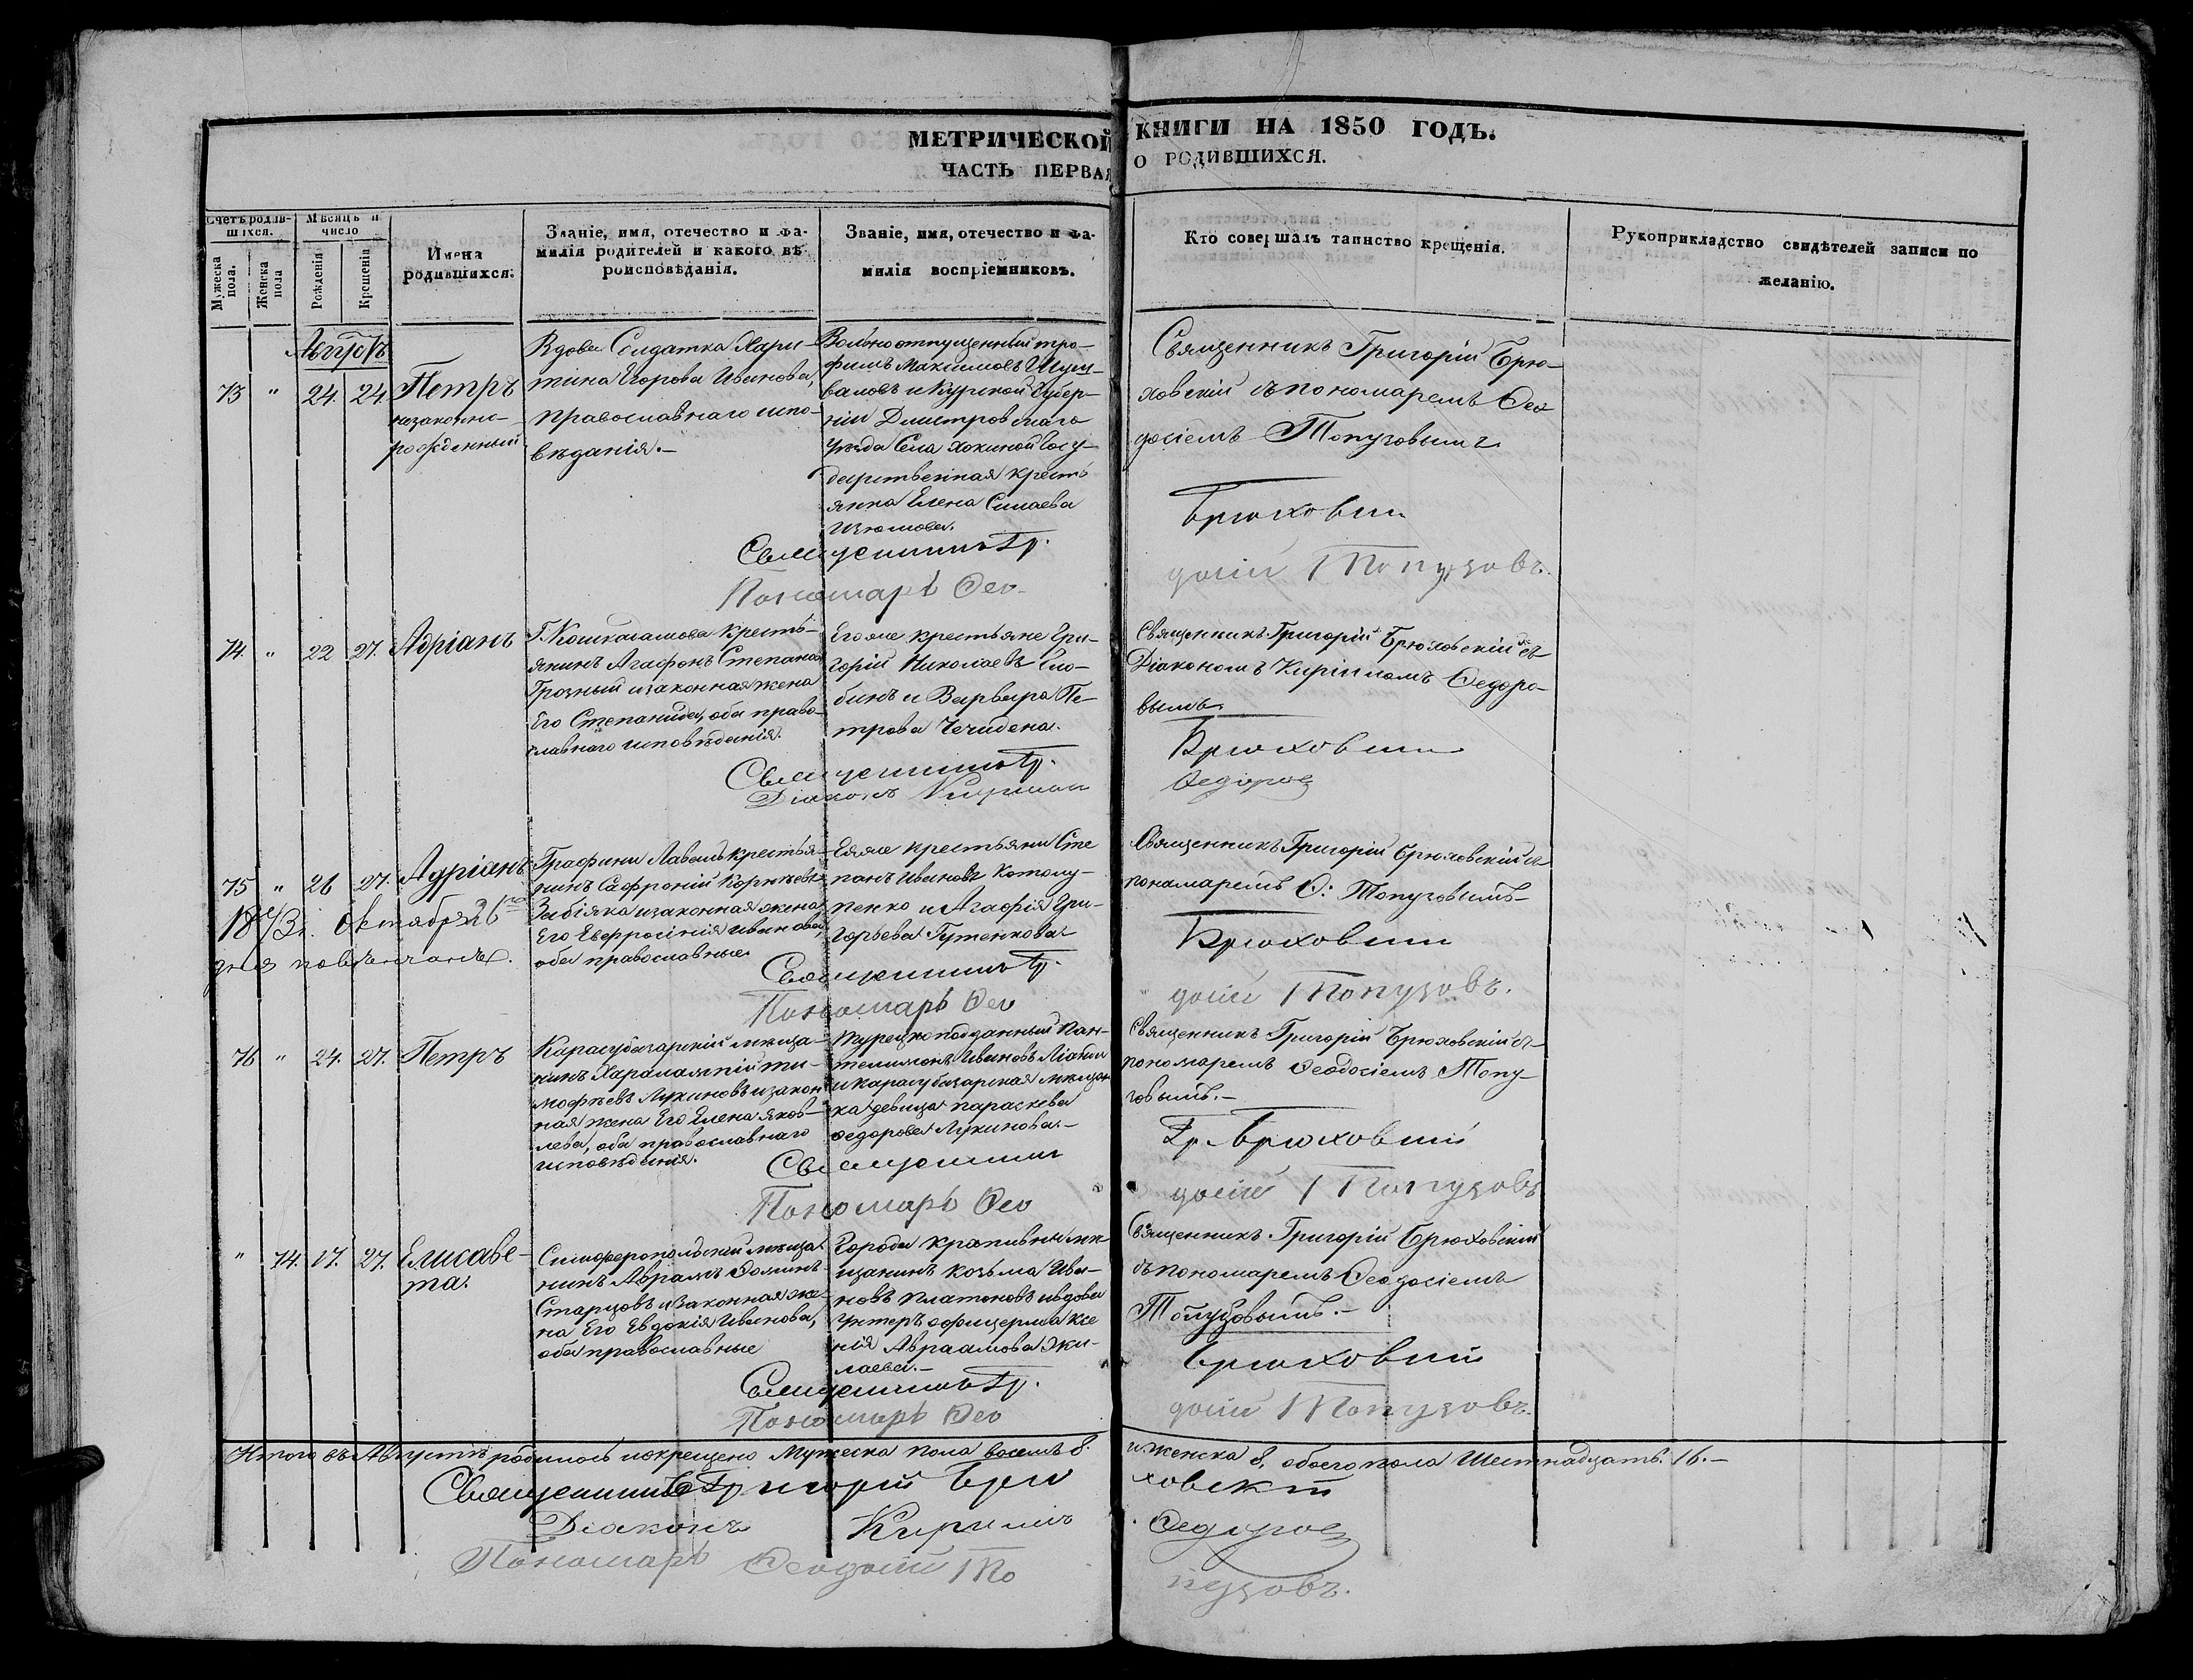 МЕТРИЧЕСКОЙ КНИГИ НА 1850 ГОДЪ.
ЧАСТЬ ПЕРВАЯ О РОДИВШИХСЯ.
Счетъ родившихся.
Мужеска пола.
Женска пола
Мѣсяцъ и число
Рожденія
Крещенія
Имена родившихся.
Званіе, имя, отечество и фамилія родителей и какого вѣроисповѣданія.
Званіе, имя, отечество и фамилія воспріемниковъ.
Кто совершалъ таинство крещенія.
Рукоприкладство свидѣтелей записи по желанію.
Августъ
73 " 24. 24. Петръ
незаконно-
рожденный
Вдова Солдатка Хари-
тина Егорова Иванова,
православнаго испо-
вѣданія.-
Вольноотпущенный Тро-
фимъ Максимовъ
и Курской Губер-
ніи Дмитровскаго
Уѣзда Села Хокиной Госу-
дарственная кресть
янка Елена
Изюмова.
Священникъ Григорій Брю-
ховскій съ пономаремъ Ѳео
досіемъ Топузовымъ
Священникъ Гр. Брюховскій
Пономарь Ѳео- досій Топузовъ.
74. " 22 27. Адріанъ
Г. Кошкадамова кресть-
янинъ Агафонъ Степановъ
Грозный и законная жена
Его Степанида, оба право-
славнаго исповѣданія.
Его же крестьяне Гри-
горій Николаевъ Гло-
бинъ и Варвара Пе-
трова
Священникъ Григорій Брюховскій съ
Діакономъ Кирилломъ Ѳедоро-
вымъ.
Священникъ Гр. Брюховскій
Діаконъ Кириллъ Ѳедоровъ
75 " 26 27. Адріанъ
Октября 26го
дня повѣнчанъ.
Графини Лаваль крестья-
нинъ Сафроній Корнѣевъ
Забіяка и законная жена
Его Евфросинія Иванова,
оба православные
Ея же крестьяни Сте
панъ Ивановъ Котолу-
пенко и Агафія Гри-
горьева Гутенкова
Священникъ Григорій Брюховскій съ
пономаремъ Ѳ: Топузовымъ-
Священникъ Гр. Брюховскій
Пономарь Ѳео досій Топузовъ.
76 " 24. 27. Петръ
Карасубазарскій мѣща-
нинъ Харалампій Ти-
мофѣевъ Лукиновъ и закон
ная жена Его Елена Яков-
лева, оба православнаго
исповѣданія.
Турецко подданный Пан-
телимонъ Ивановъ
и карасубазарская мѣщан
ка девица Параскева
Ѳедорова Лукинова.-
Священникъ Григорій Брюховскій съ
пономаремъ Ѳеодосіемъ Топу-
зовымъ.-
Священникъ Гр. Брюховскій
Пономарь Ѳео досій Топузовъ
" 74. 17. 27. Елисаве-
та.
Симферопольскій мѣща
нинъ Аврамъ
Старцовъ и законная же-
на Его Евдокія Иванова,
оба православные
Города Крапивны мѣ-
щанинъ Козьма Ива-
новъ Платоновъ и вдова
Унтеръ офицерша Ксе
нія Авраамова
Священникъ Григорій Брюховскій
съ пономаремъ Ѳеодосіемъ
Топузовымъ.-
Священникъ Гр. Брюховскій
Пономарь Ѳео досій Топузовъ.
Итого въ Августѣ родилось и крещено Мужеска пола восемь 8. и женска 8. обоего пола Шестнадцать. 16.-
Священникъ Григорій Брю ховскій
Діаконъ Кириллъ Ѳедоровъ
Пономарь Ѳеодосій То пузовъ.